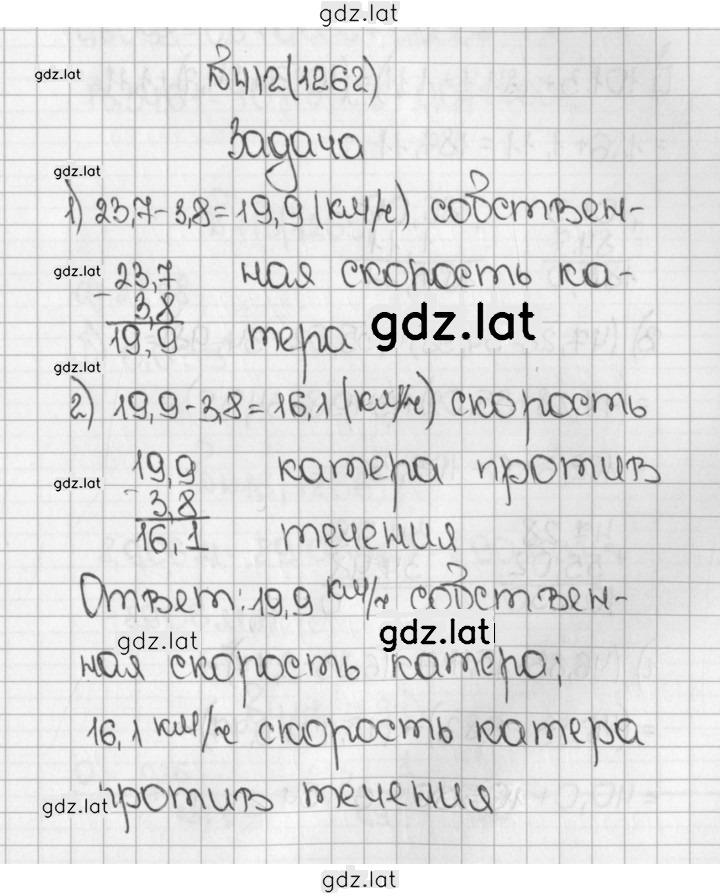 gdz.lat
gdz.lat
№412(1262)
Задача
gdz.lat
1) 23,7-3,8=19,9 (км/ч) собствен-
gdz.lat
23,7 ная скорость ка-
- 3,8
19,9 тера gdz.lat
gdz.lat
2) 19,9-3,8=16,1 (км/ч) скорость
gdz.lat
19,9 катера против
- 3,8
16,1 течения
Ответ: 19,9 км/ч собствен-
gdz.lat gdz.lat
ная скорость катера;
16,1 км/ч скорость катера
gdz.lat против течения
gdz.lat